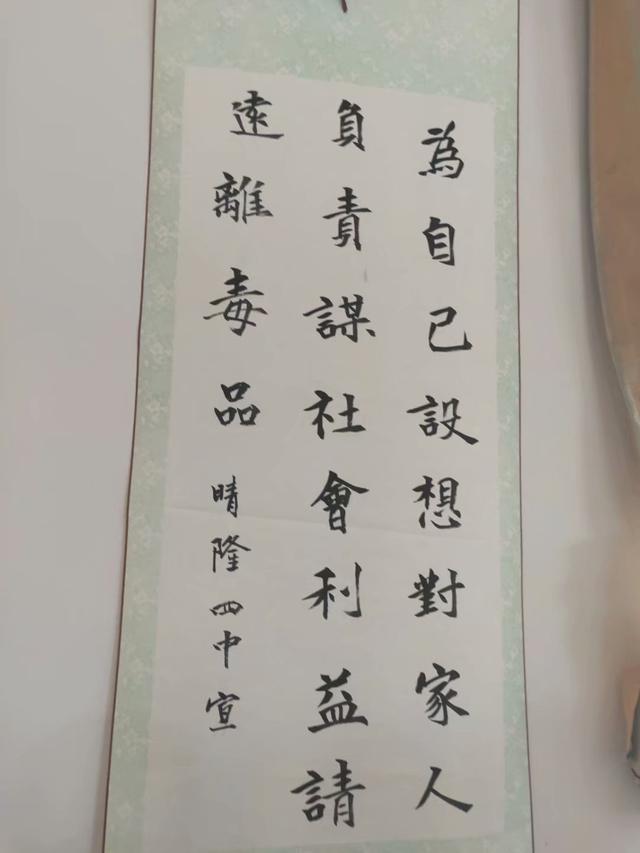 為自己設想對家人
負責謀社會利益請
遠離毒品
晴隆四中宣